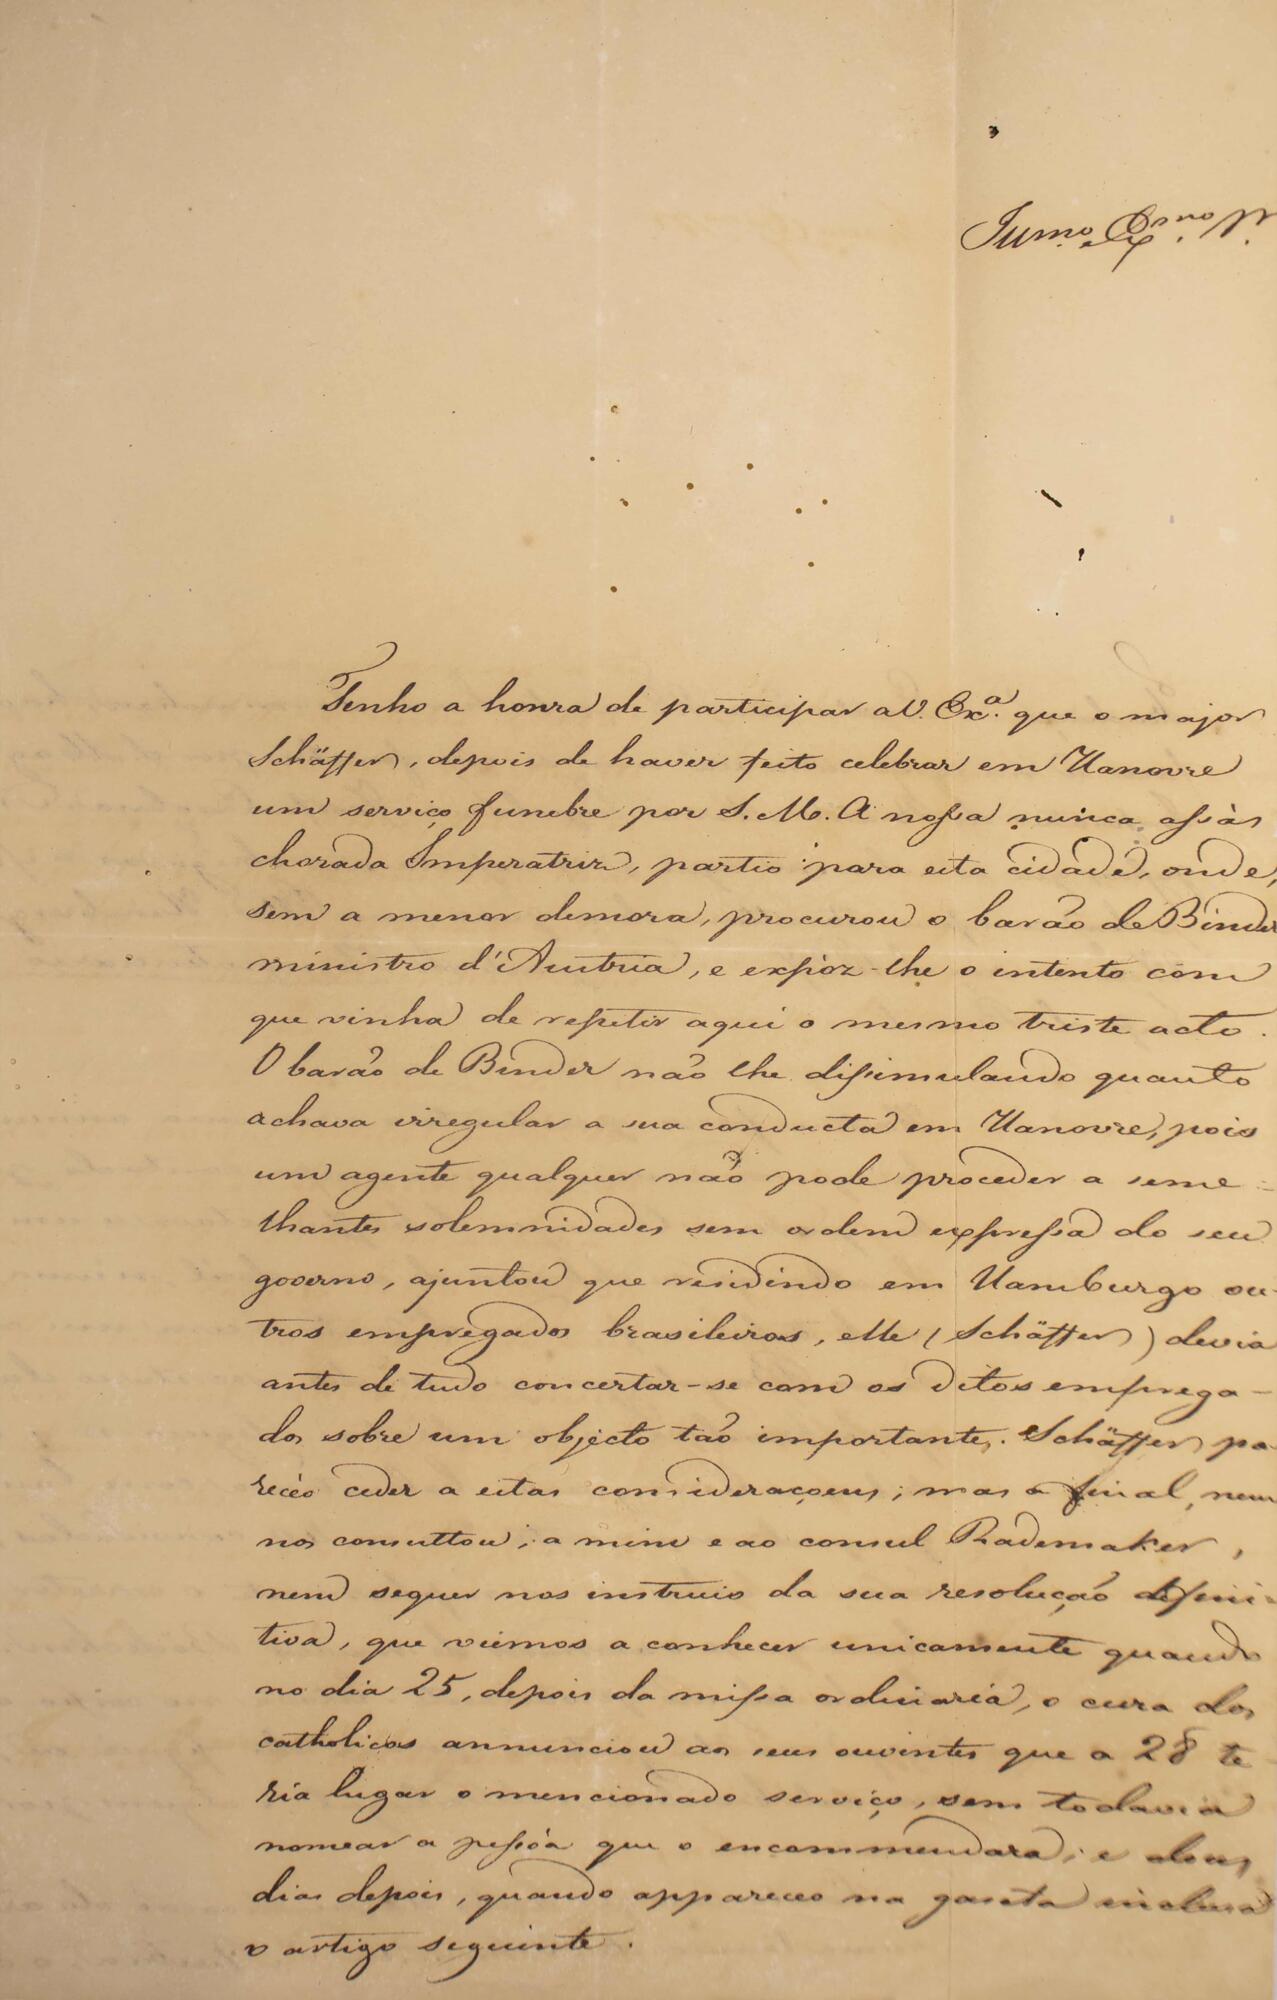 Illmo. e Exmo. Sr.
Tenho a honra de participar a V. Exa. que o major
Schäffer, depois de haver feito celebrar em Hanovre
um serviço funebre por S. M. A nossa nunca assàs
chorada Imperatriz, partio para esta cidade, onde,
sem a menor demora, procurou o barão de Binder
ministro d'Austria, e expòz-lhe o intento com
que vinha de repetir aqui o mesmo triste acto.
O barão de Binder não lhe dissimulando quanto
achava irregular a sua conducta em Hanovre, pois
um agente qualquer não pode proceder a seme-
lhantes solemnidades sem ordem expressa do seu
governo, ajuntou que residindo em Hamburgo ou-
tros empregados brasileiros, elle (Schäffer) devia
antes de tudo concertar-se com os ditos emprega-
dos sobre um objecto tão importante. Schäffer pa-
recêo ceder a estas consideraçoens; mas a final, nem
nos consultou, a mim e ao consul Rademaker,
nem sequer nos instruio da sua resolução defini-
tiva, que viemos a conhecer unicamente quando
no dia 25, depois da missa ordinaria, o cura dos
catholicos annunciou aos seus ouvintes que a 28 te-
ria lugar o mencionado serviço, sem todavia
nomear a pessôa que o encommendara; e dous
dias depois, quando appareceo na gazeta inclusa
o artigo seguinte.